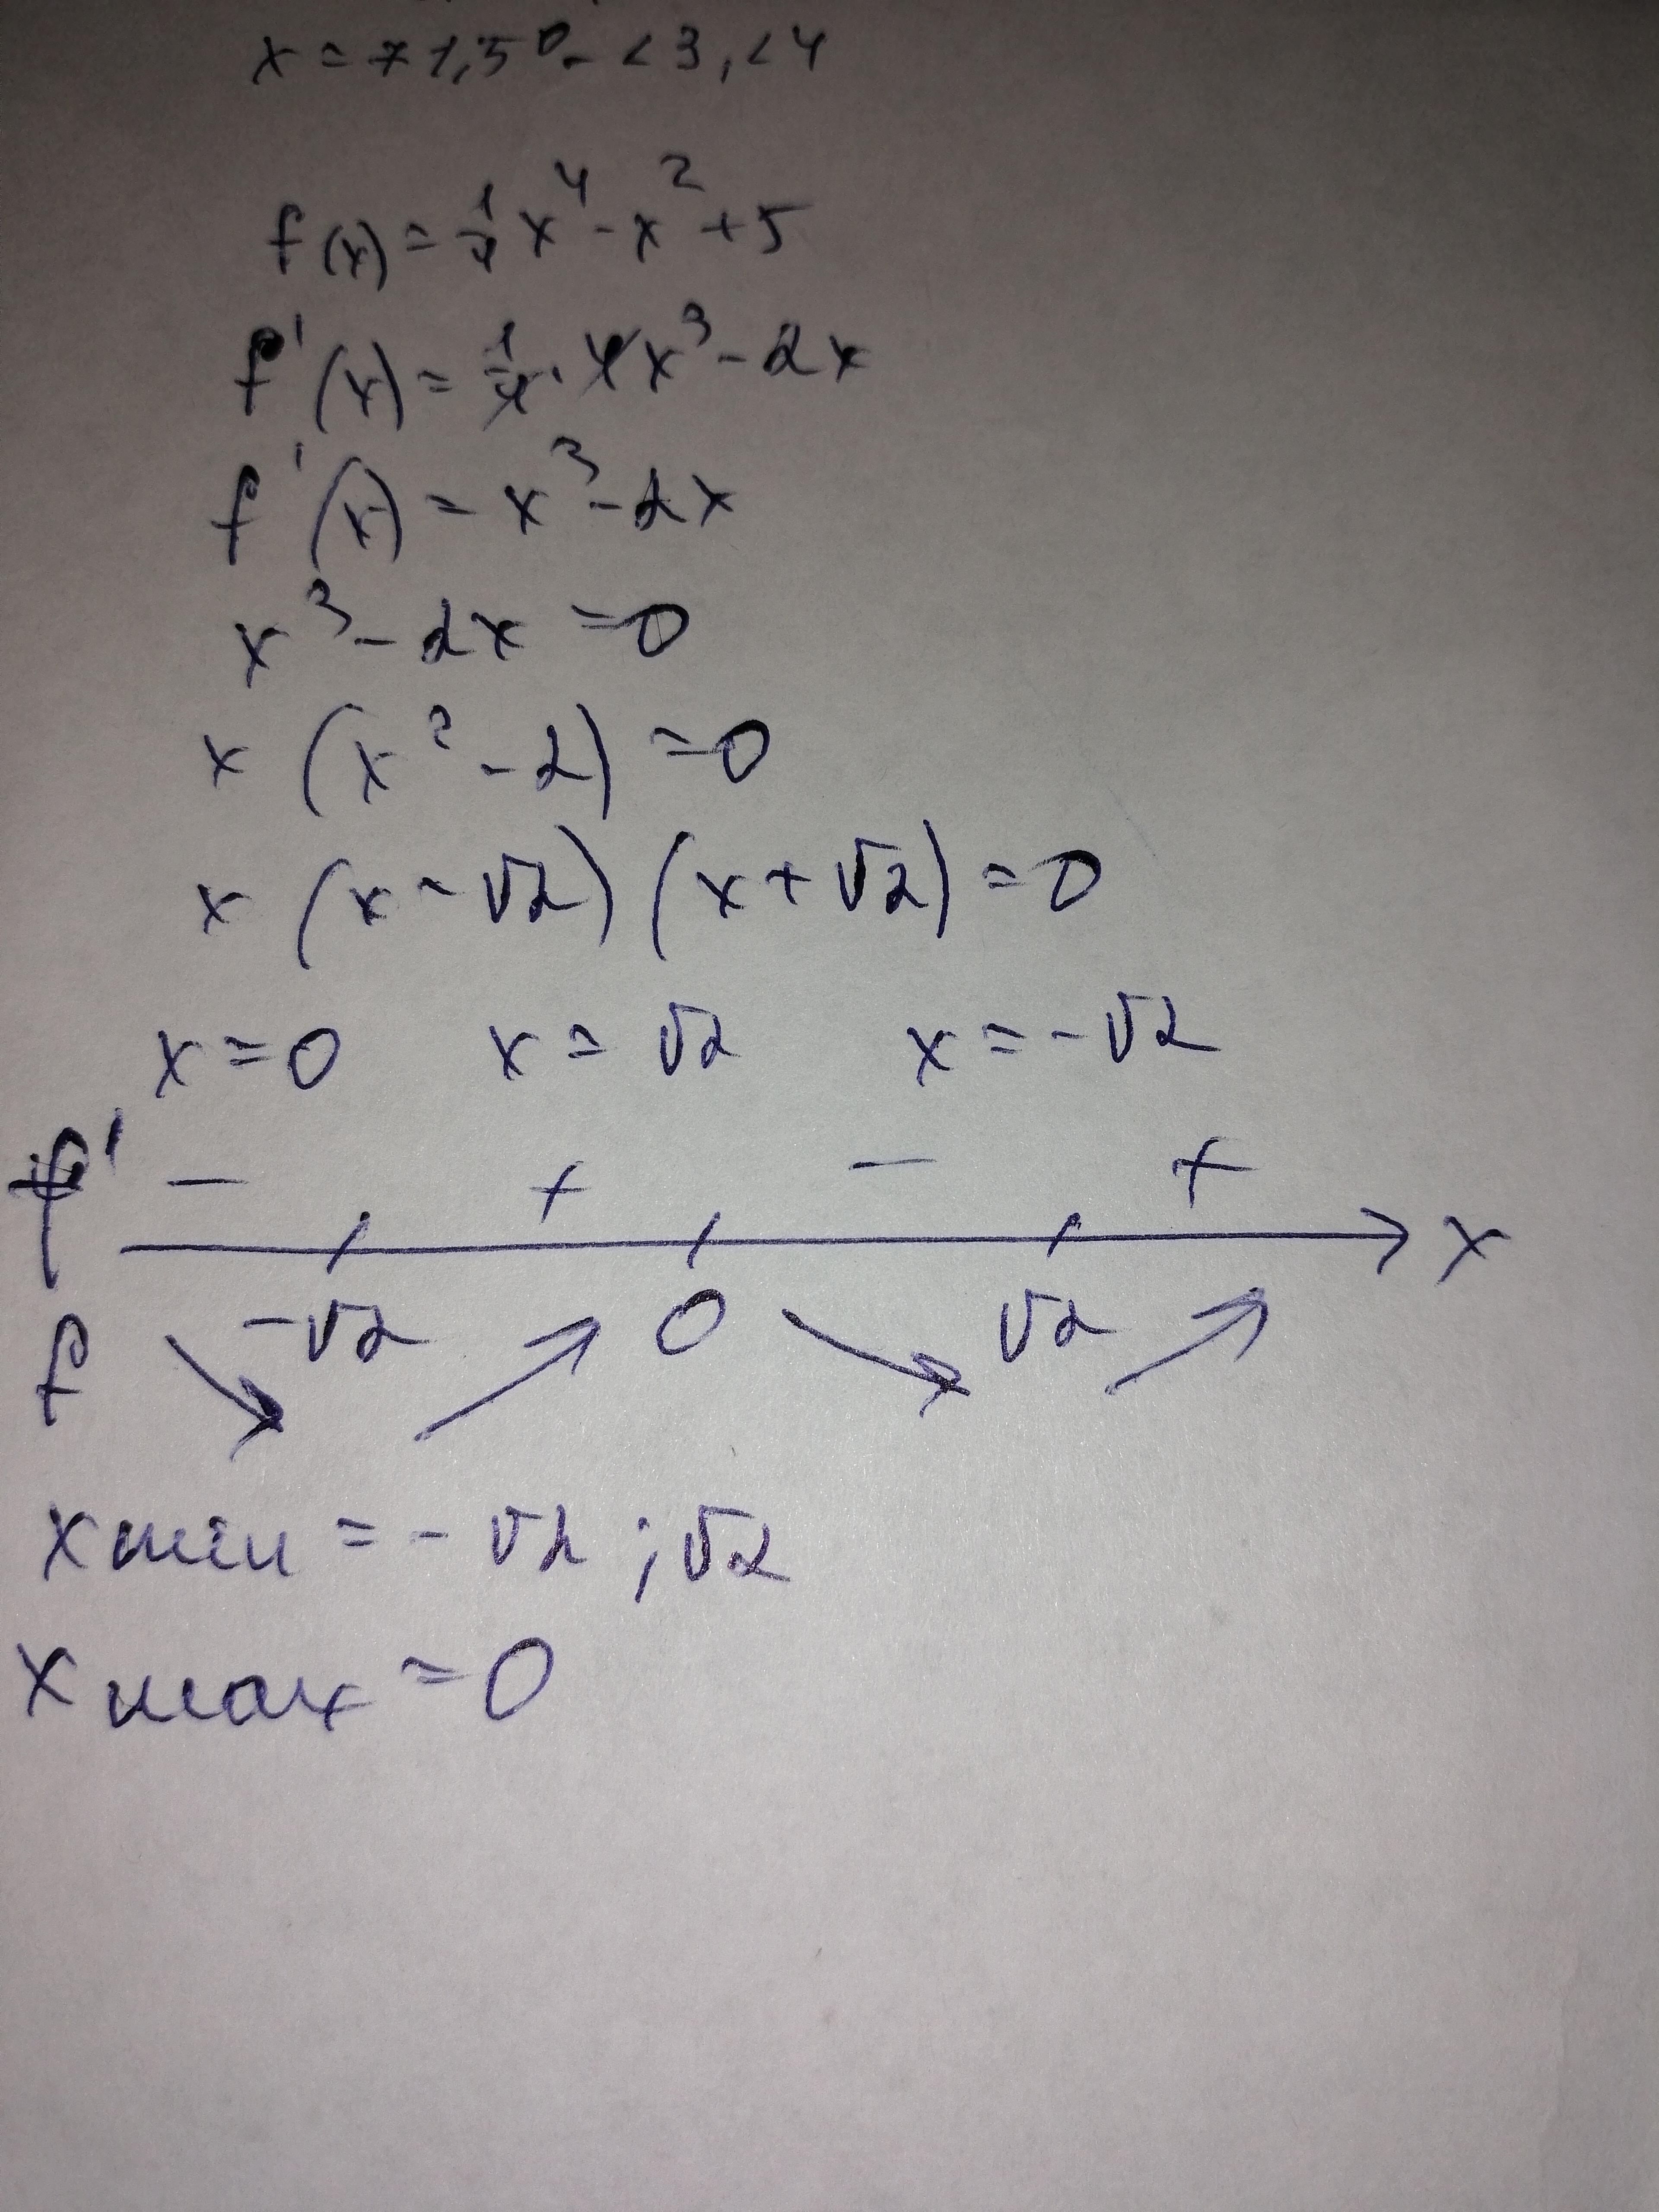 x = 71,5° - <3, <4
f(x) = 1/4 x⁴ - x² + 5
f'(x) = 1/4 · 4x³ - 2x
f'(x) = x³ - 2x
x³ - 2x = 0
x (x² - 2) = 0
x (x - √2) (x + √2) = 0
x = 0 x = √2 x = -√2
f' - + - +
x
-√2 0 √2
f
x min = -√2 ; √2
x max = 0